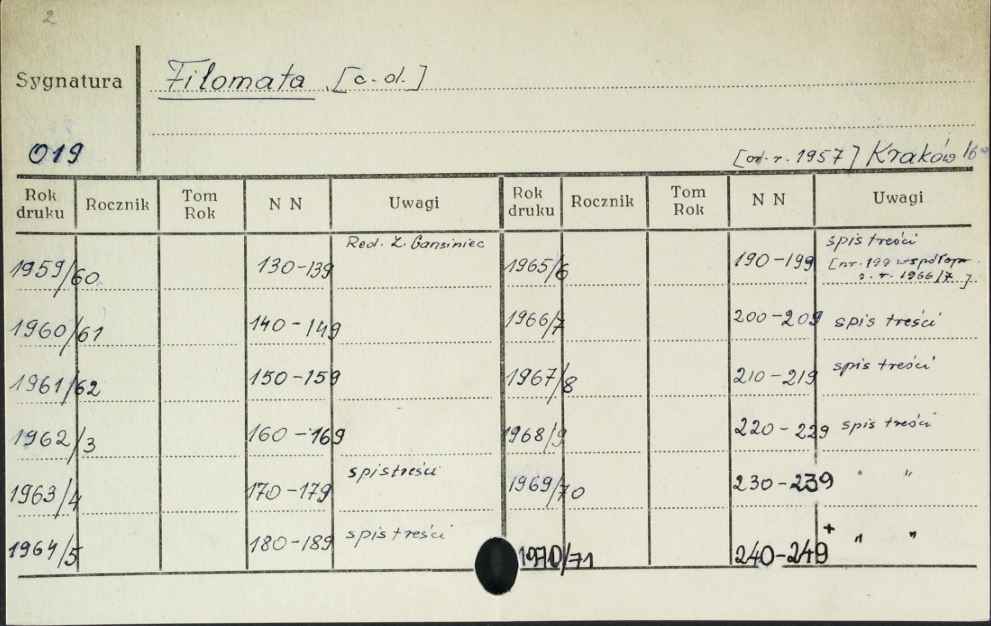 2
Sygnatura Filomata [c.d.]
019 [od. r. 1957] Kraków
Rok druku Rocznik Tom Rok N N Uwagi Rok druku Rocznik Tom Rok N N Uwagi
1959/60 130-139 Red. Z. Gansiniec 1965/6 190-199 spis treści
[nr. 199 współopr.
z. r. 1966/7]
1960/61 140-149 1966/7 200-209 spis treści
1961/62 150-159 1967/8 210-219 spis treści
1962/3 160-169 1968/9 220-229 spis treści
1963/4 170-179 spis treści 1969/70 230-239 " "
1964/5 180-189 spis treści 1970/71 240-249 + " "